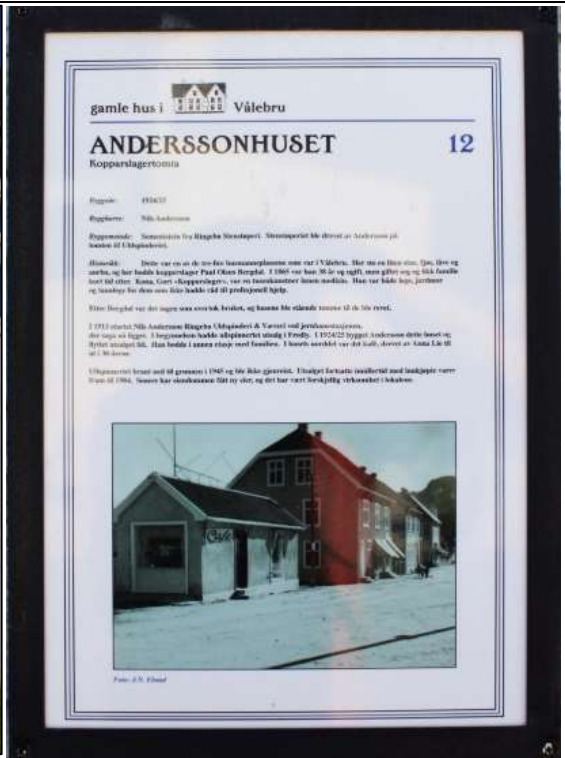 gamle hus i Vålebru
ANDERSSONHUSET 12
Kopparslagertomta
Byggeår: 1924/25
Byggherre: Nils Andersson
Byggemåte: Sementstein fra Ringebu Stenstøperi. Stenstøperiet ble drevet av Andersson på
tomten til Uldspinderiet.
Historikk: Dette var en av de tre-fire husmannsplassene som var i Vålebru. Her sto en liten stue, fjøs, låve og
og her bodde kopparslager Paul Olsen Bergdal. I 1865 var han 38 år og ugift, men giftet seg og fikk familie
kort tid etter. Kona, Gort «Kopparslager», var en tusenkunstner innen medisin. Hun var både lege, jordmor
og tannlege for dem som ikke hadde råd til profesjonell hjelp.
Etter Bergdal var det ingen som overtok bruket, og husene ble stående tomme til de ble revet.
I 1913 startet Nils Andersson Ringebu Uldspinderi & Væveri ved jernbanestasjonen,
der saga nå ligger. I begynnelsen hadde ullspinneriet utsalg i Fredly. I 1924/25 bygget Andersson dette huset og
flyttet utsalget hit. Han bodde i annen etasje med familien. I husets norddel var det kafé, drevet av Anna Lie til
ut i 30 årene.
Ullspinneriet brant ned til grunnen i 1945 og ble ikke gjenreist. Utsalget fortsatte imidlertid med innkjøpte varer
fram til 1984. Senere har eiendommen fått ny eier, og det har vært forskjellig virksomhet i lokalene.
Café
Foto: J.N.